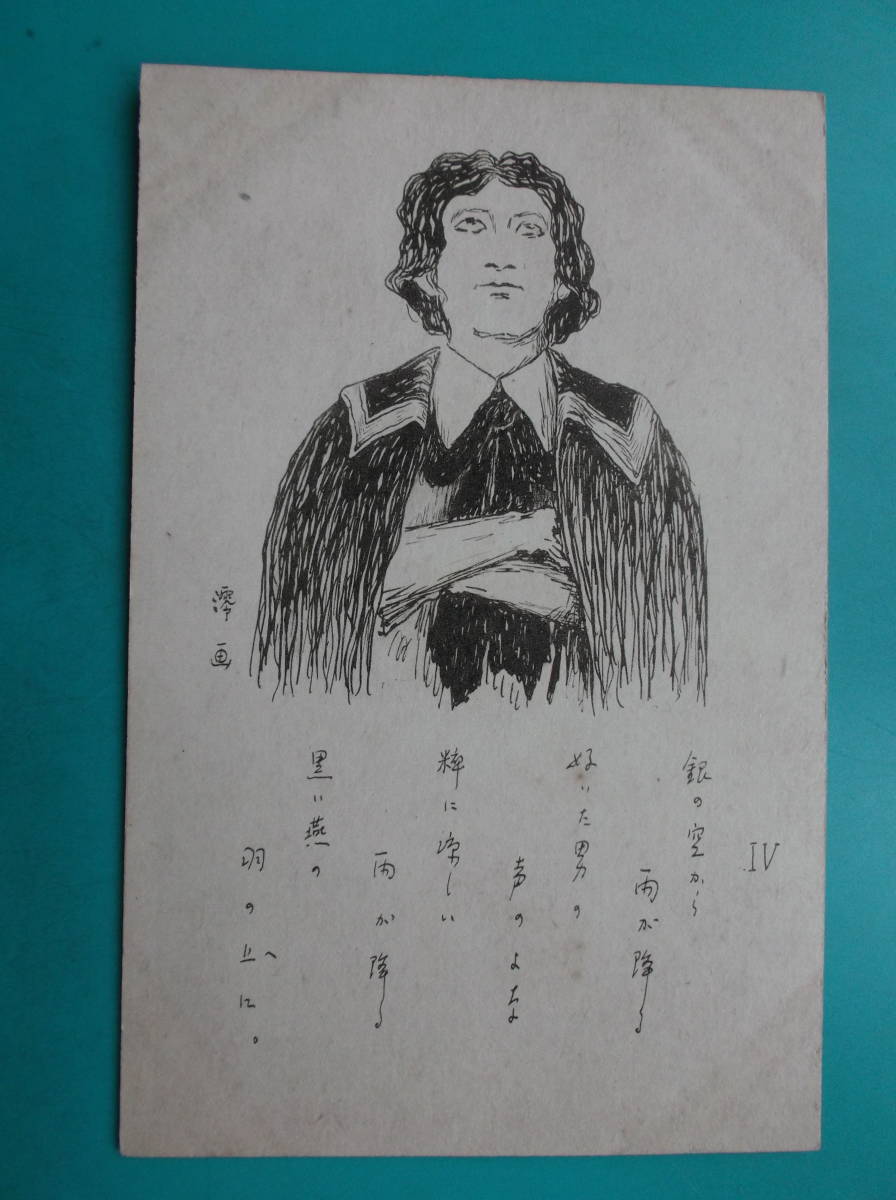 IV
銀の空から
雨が降る
好いた男の
声のよな
粋に涼しい
雨が降る
黒い燕の
羽の上に。
へ
澪画